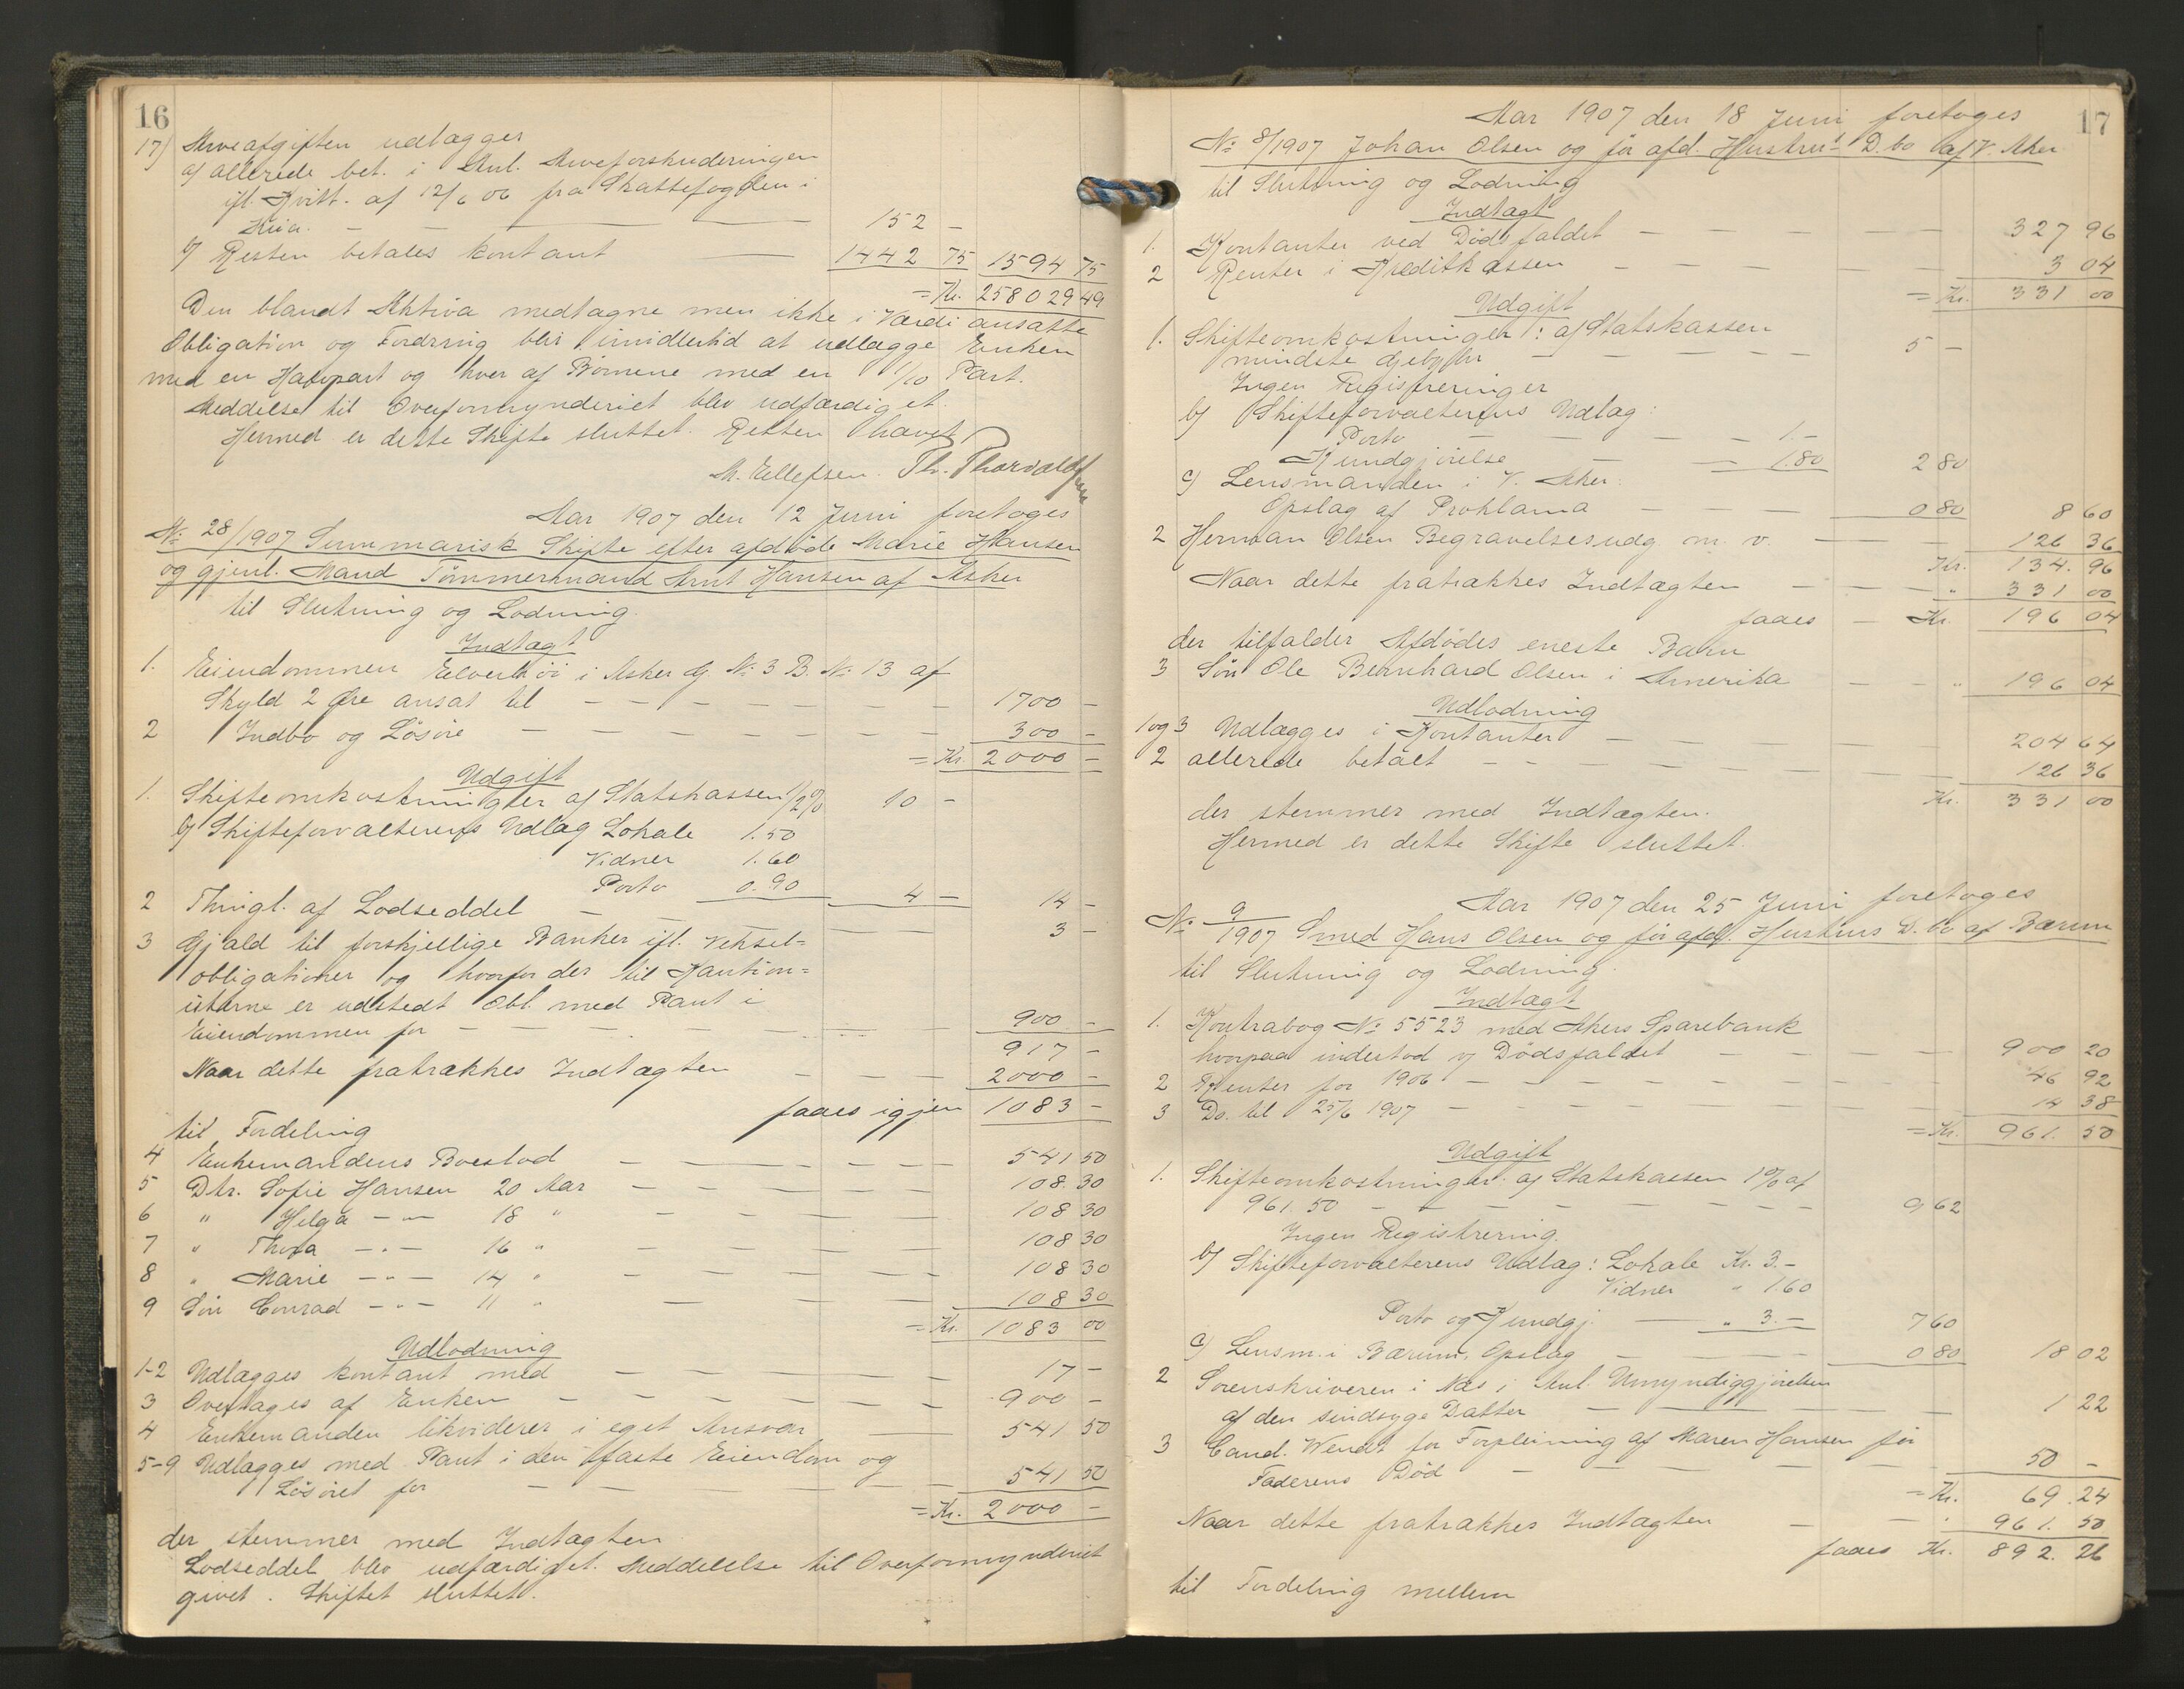 16
17) Arveafgiften udlægges
a) allerede bet. i Anl. Arveforskuderingen
ifl. Kvitt. af 12/6 06 fra Skattefogden i
Kria. — — — 152 –
b) Resten betales kontant — 1442 75 1594 75
= Kr. 258029 49
Den blandt Aktiva medtagne men ikke i Værdi ansatte
Obligation og Fordring blir imidlertid at udlægge Enken
med en Halvpart og hver af Børnene med en 1/10 Part.
Meddelse til Overformynderiet blev udfærdiget.
Hermed er dette Skifte sluttet. Retten hævet
M. Ellefsen. Th. Thorvaldsen
Aar 1907 den 12 Juni foretoges
No 28/1907 Summarisk Skifte efter afdøde Marie Hansen
og gjenl. Mand Tømmermand Arnt Hansen af Asker
til Slutning og Lodning.
Indtægt
1. Eiendommen Elverhøi i Asker G. No 3 B. No 13 af
Skyld 2 Øre ansat til — — — 1700 –
2 Indbo og Løsøre — — — 300 –
= Kr. 2000 –
Udgift
1. Skifteomkostninger a) Statskassen 1/2 % 10 –
b) Skifteforvalterens Udlag Lokale 1.50
Vidner 1.60
Porto 0.90 4 – 14 –
2 Thingl. af Lodseddel — — 3 –
3 Gjæld til forskjellige Banker ifl. Veksel=
obligationer og hvorfor der til Kaution=
isterne er udstedt Obl. med Pant i
Eiendommen for — — — 900 –
917 –
Naar dette fratrækkes Indtægten — — 2000 –
faaes igjen 1083 –
til Fordeling
4 Enkemandens Boeslod — — — 541 50
5 Dtr. Sofie Hansen 20 Aar — — — 108 30
6 " Helga —"— 18 " — — — 108 30
7 " Thora —"— 16 " — — — 108 30
8 " Marie —"— 14 " — — — 108 30
9 Søn Conrad —"— 11 " — — — 108 30
= Kr. 1083 00
Udlodning
1-2 Udlægges kontant med — — — 17 –
3 Overtages af Enken — — — 900 –
4 Enkemanden likviderer i eget Ansvar — 541 50
5-9 Udlægges med Pant i den faste Eiendom og
Løsøret for — — — 541 50
= Kr. 2000 –
der stemmer med Indtægten
Lodseddel blev udfærdiget. Meddelelse til Overformynderiet
givet. Skiftet sluttet.
17
Aar 1907 den 18 Juni foretoges
No 8/1907 Johan Olsen og før afd. Hustrus D. bo af V. Aker
til Slutning og Lodning
Indtægt
1. Kontanter ved Dødsfaldet — — — 327 96
2 Renter i Kreditkassen — — — 3 04
= Kr. 331 00
Udgift
1. Skifteomkostninger: a) Statskassen
mindste Gebyhr — — — 5 –
Ingen Registreringer
b) Skifteforvalterens Udlag:
Porto — — — 1.–
Kundgjørelse — — 1.80 2 80
c) Lensmanden i V. Aker:
Opslag af Proklama — — 0 80 8 60
2 Herman Olsen Begravelsesudg. m. v. — — 126 36
Kr. 134. 96
Naar dette fratrækkes Indtægten — — " 331 00
faaes — Kr. 196 04
der tilfalder Afdødes eneste Barn
3 Søn Ole Bernhard Olsen i Amerika — — " 196 04
Udlodning
1 og 3 Udlægges i Kontanter — — — 204 64
2 allerede betalt — — — 126 36
Kr. 331 00
der stemmer med Indtægten.
Hermed er dette Skifte sluttet.
Aar 1907 den 25 Juni foretoges
No 9/1907 Smed Hans Olsen og før afd. Hustrus D. bo af Bærum
til Slutning og Lodning.
Indtægt
1. Kontrabog No 5523 med Akers Sparebank
hvorpaa indestod v) Dødsfaldet — — — 900 20
2 Renter for 1906 — — — 46 92
3 Do. til 25/6 1907 — — — 14 38
= Kr. 961. 50
Udgift
1. Skifteomkostninger: a) Statskassen 1 % af
961.50 — — — 9 62
Ingen Registrering.
b) Skifteforvalterens Udlag: Lokale Kr. 3.–
Vidner " 1.60
Porto og Kundgj. — " 3.– 7 60
c) Lensm. i Bærum, Opslag — — 0 80 18 02
2 Sorenskriveren i Næs i Anl. Umyndiggjørelsen
af den sindsyge Datter — — — 1 22
3 Cand. Wendt for Forpleining af Maren Hansen før
Faderens Død — — — 50 –
= Kr. 69. 24
Naar dette fratrækkes Indtægten — — " 961. 50
faaes Kr. 892. 26
til Fordeling mellem